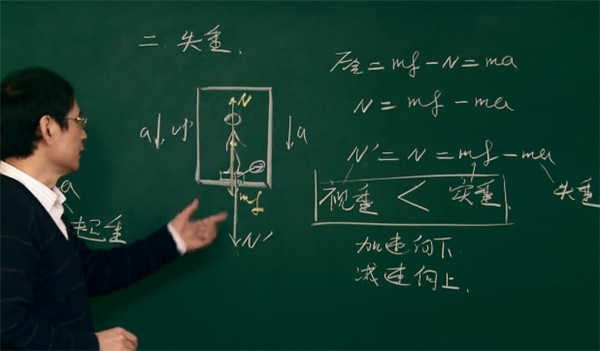 二.失重.
F合=mg-N=ma
N=mg-ma
N'=N=mg-ma
视重<实重.
失重
加速向下.
减速向上.
N
a
a
mg
N'
a
超重